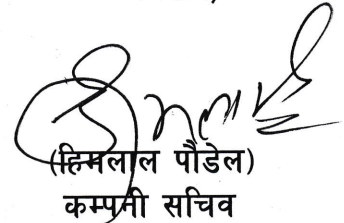 (हिमलाल पौडेल)
कम्पनी सचिव